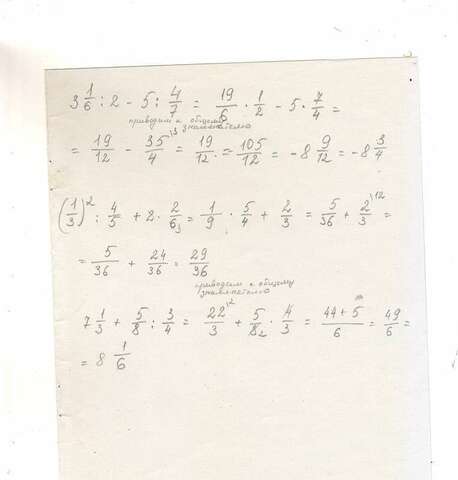 3 1/6 : 2 - 5 : 4/7 = 19/6 · 1/2 - 5 · 7/4 =
приводим к общему
знаменателю
= 19/12 - 35/4 \3 = 19/12 - 105/12 = -8 9/12 = -8 3/4
(1/3)² : 4/5 + 2 · 2/6 3 = 1/9 · 5/4 + 2/3 = 5/36 + 2/3 \12 =
= 5/36 + 24/36 = 29/36
приводим к общему
знаменателю
7 1/3 + 5/8 : 3/4 = 22/3 \2 + 5/8 2 · 4/3 = 44+5/6 = 49/6 =
= 8 1/6